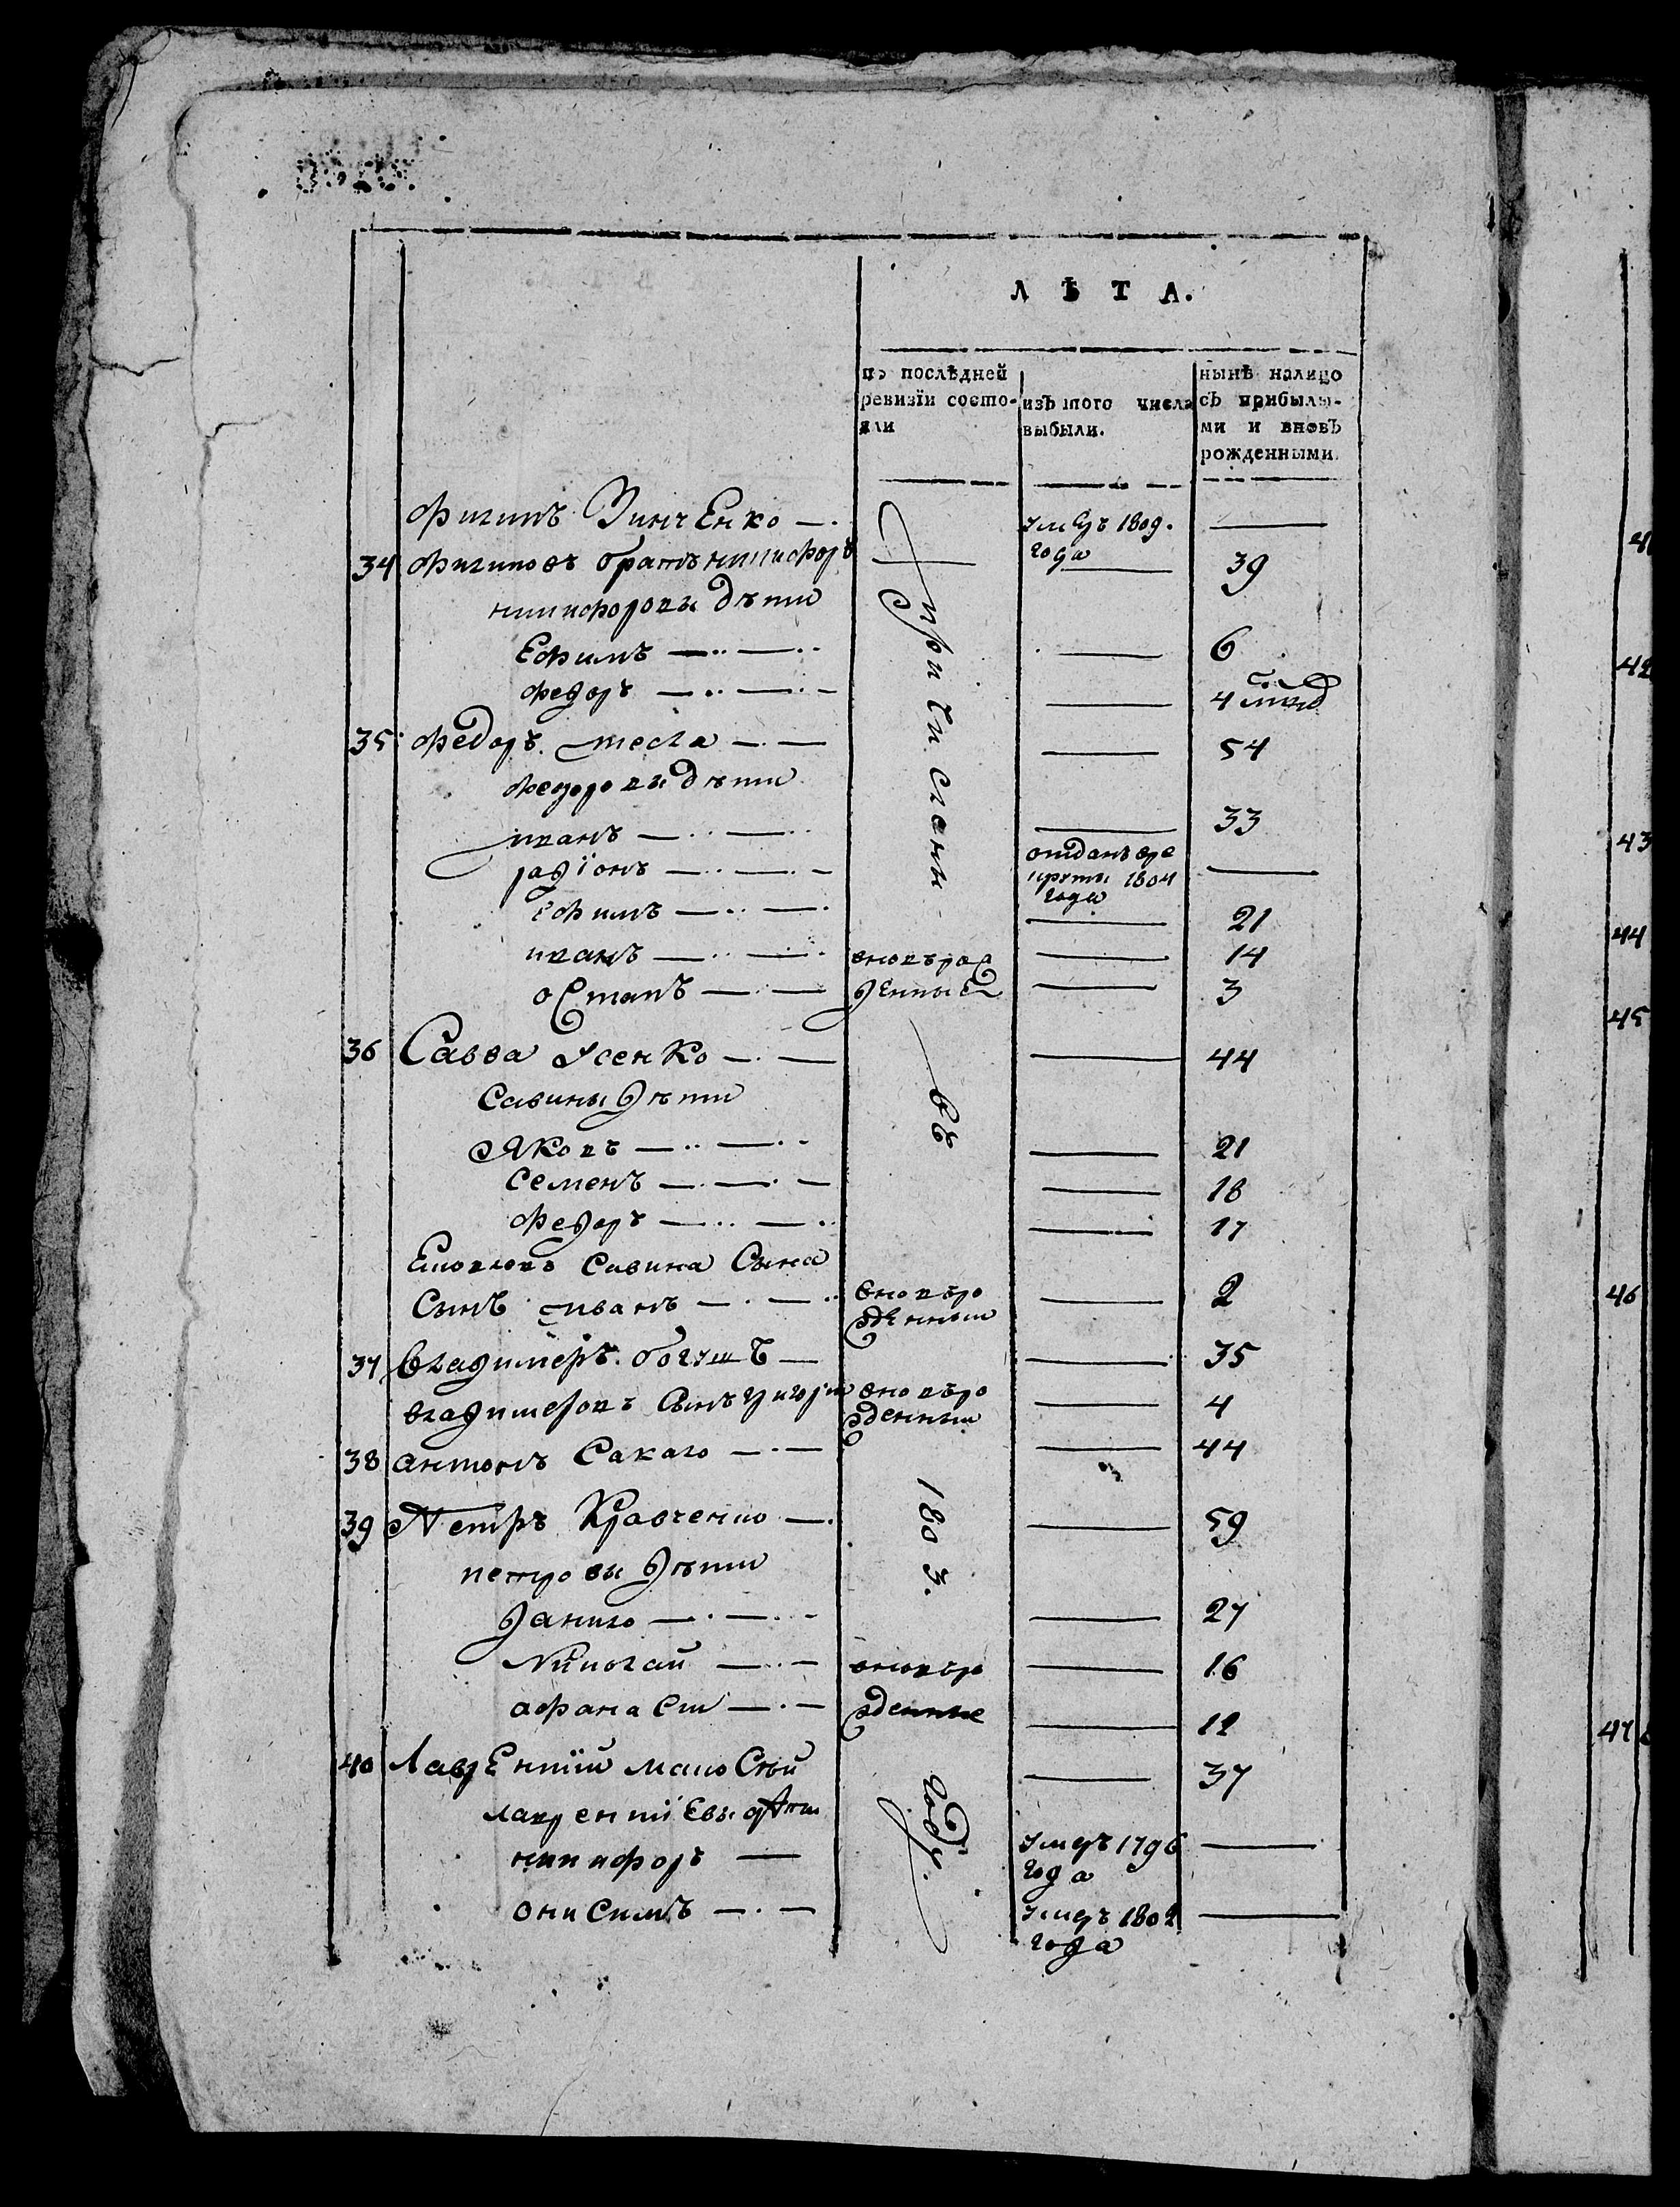 ЛѢТА.
по послѣдней ревизіи состояли
изъ того числа выбыли.
нынѣ налицо съ прибылыми и вновь рожденными.
Филипъ Зинченко умеръ 1809. года
34 Филиповъ братъ никифоръ 39
никифоровы дѣти
Ефимъ 6
федоръ 4
35 федоръ тесля 54
федоровы дѣти
иванъ 33
радіонъ отданъ вре круты 1804 года
Ефимъ 21
иванъ вновърож 14
остапъ денные 3
36 Савва Усенко 44
Савины дѣти
Яковъ 21
Семенъ 18
федоръ 17
Савина Сына
Сынъ иванъ вновъро жденный 2
37 владимеръ богушъ 35
владимеровъ Сынъ григори вновъро жденный 4
38 антонъ Сакало 44
39 Петръ Кравченко 59
петровы дѣти
данило 27
Николай вновъро 16
афанасій жденные 12
40 Лаврентій 37
лаврентіевы дѣти
никифоръ умеръ 1796 года
онисимъ умеръ 1802 года
причислены
въ
1803.
году.
41
42
43
44
45
46
47